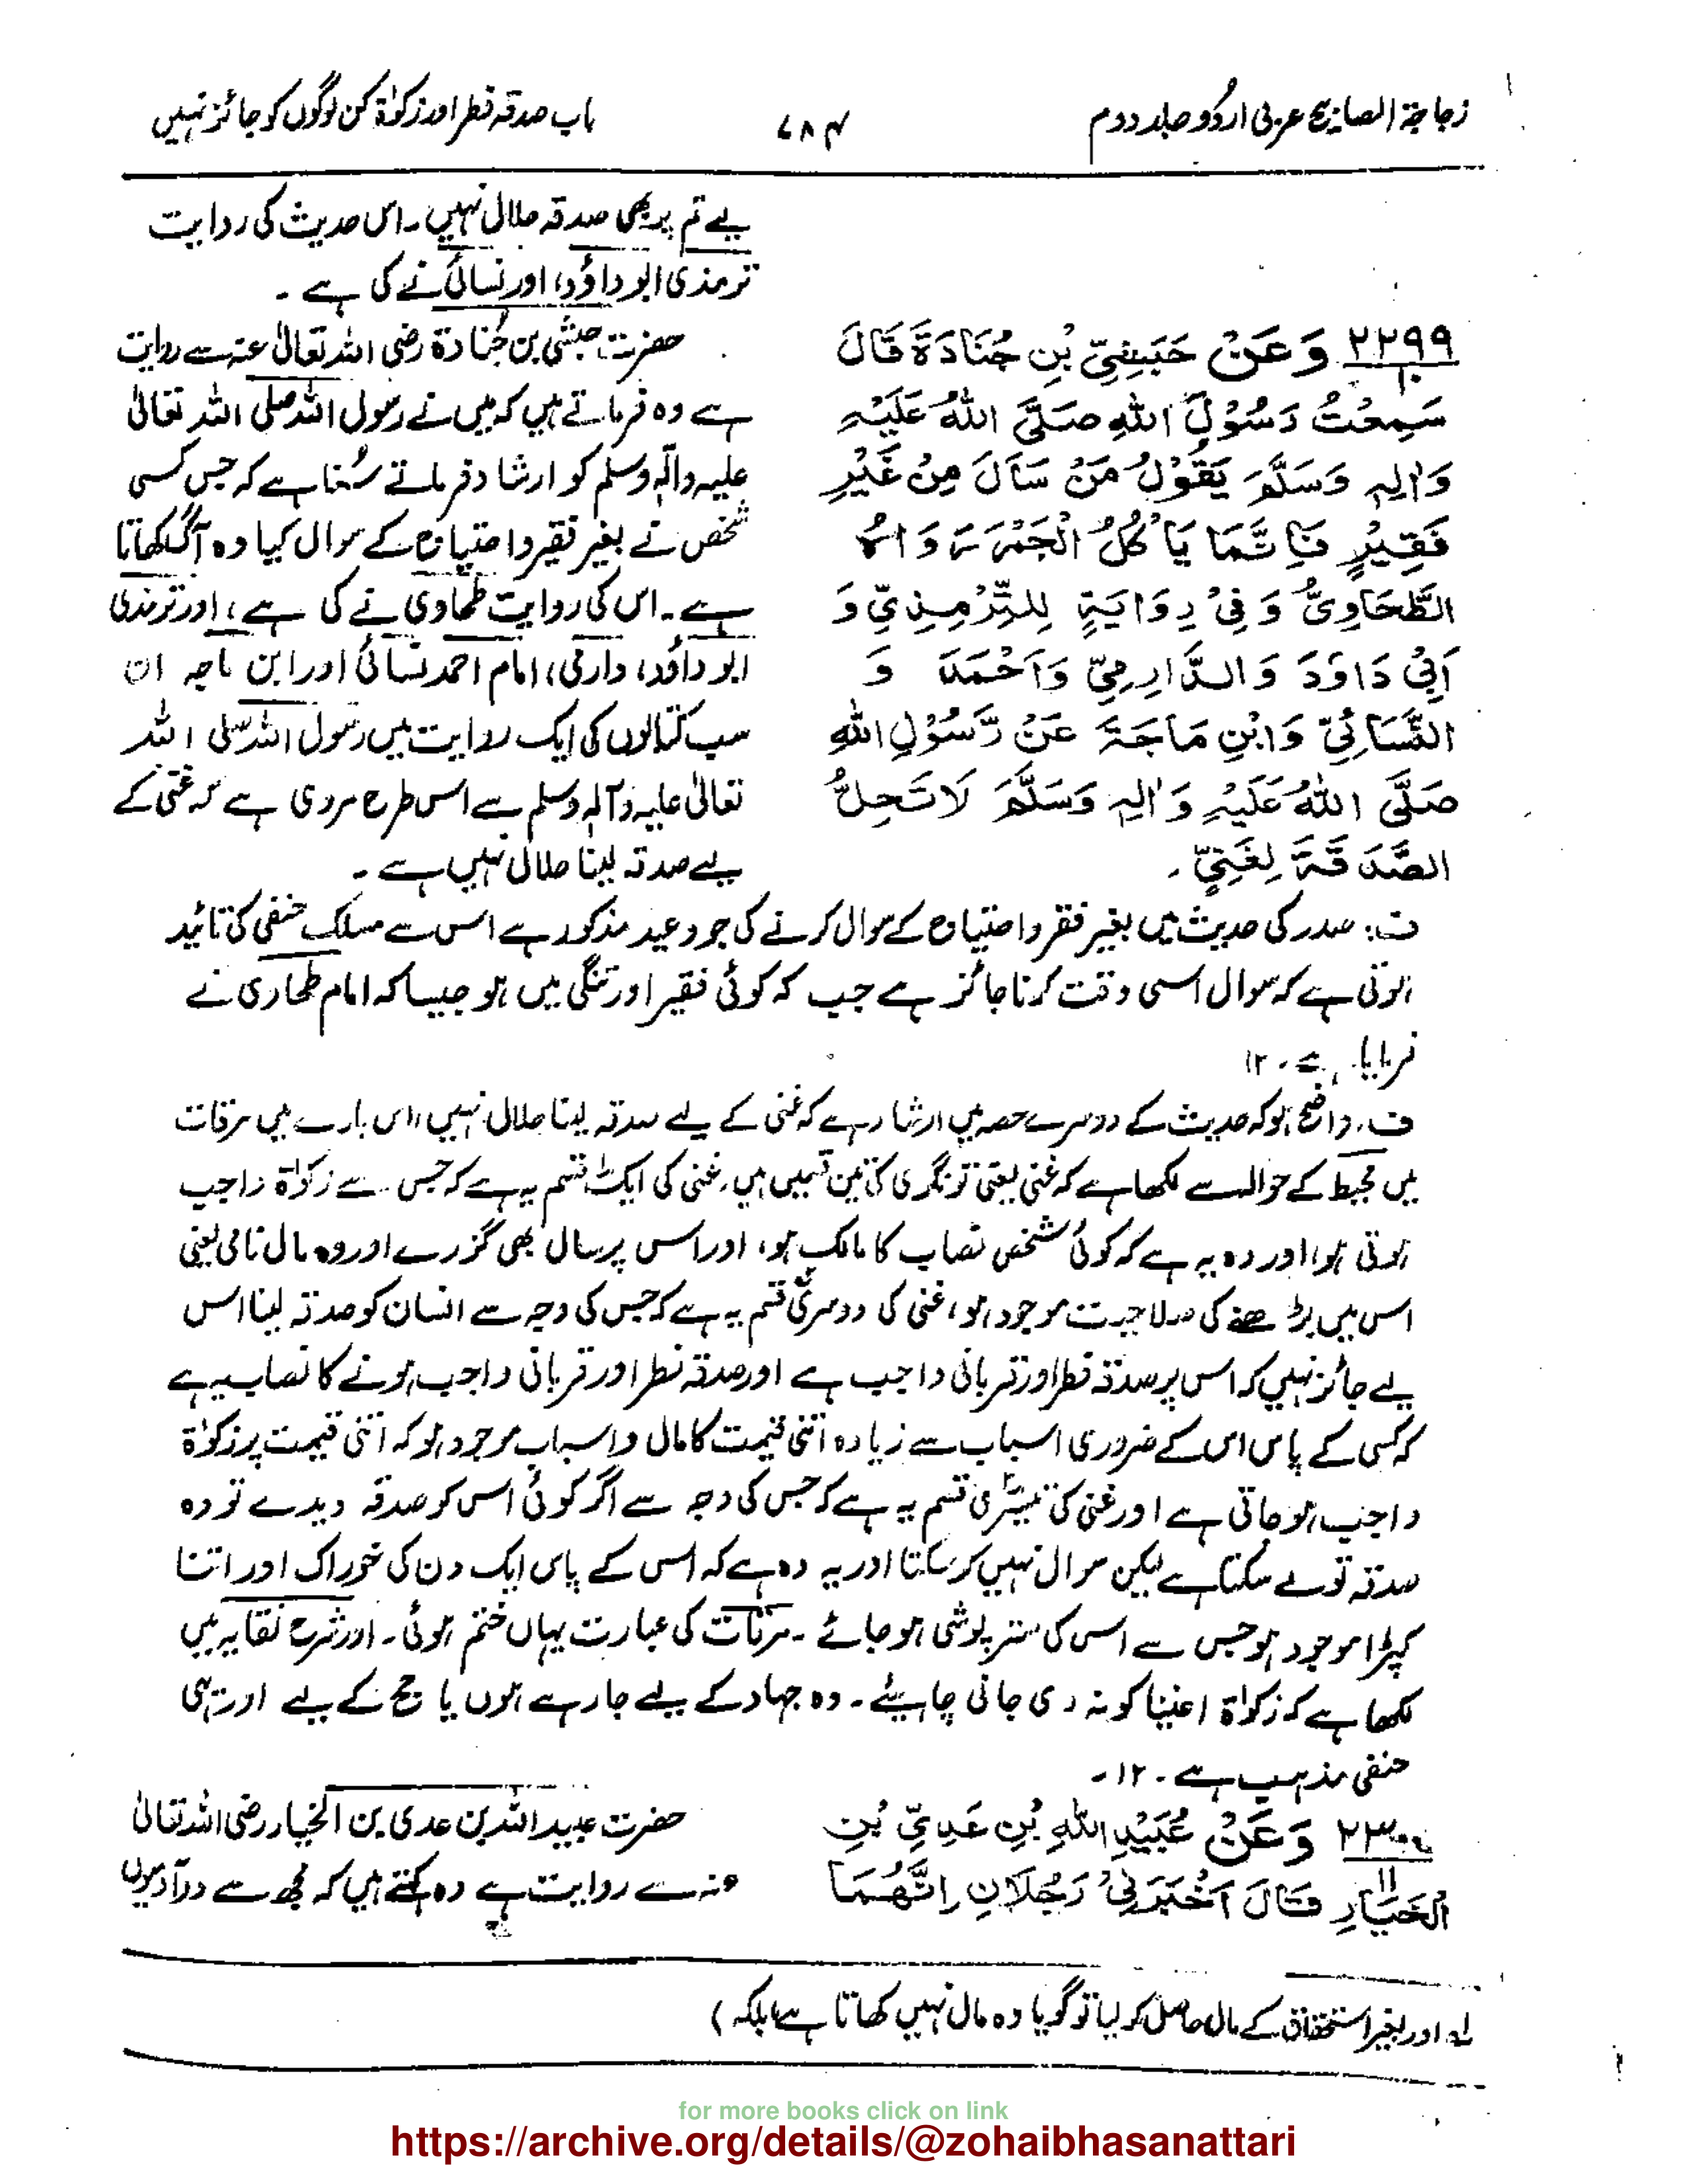 زجاجۃ المصابیح عربی اردُو جلد دوم
۴۸۷
باب صدقہ فطر اور زکوٰۃ کن لوگوں کو جائز نہیں
لیے تم پر بھی صدقہ حلال نہیں۔ اس حدیث کی روایت
ترمذی ابوداؤد، اور نسائی نے کی ہے ۔
۲۲۹۹ وَعَنْ حَبَشِيِّ بْنِ جُنَادَةَ قَالَ
۱۰
سَمِعْتُ رَسُوْلَ اللهِ صَلَّى اللهُ عَلَيْهِ
وَاٰلِهٖ وَسَلَّمَ يَقُوْلُ مَنْ سَأَلَ مِنْ غَيْرِ
فَقِيْرٍ فَاِنَّمَا يَاْكُلُ الْجَمْرَ رَوَاهُ
الطَّحَاوِيُّ وَفِيْ رِوَايَةٍ لِلتِّرْمِذِيِّ وَ
اَبِيْ دَاوٗدَ وَالدَّارِمِيِّ وَاَحْمَدَ وَ
النَّسَائِيِّ وَابْنِ مَاجَةَ عَنْ رَّسُوْلِ اللهِ
صَلَّى اللهُ عَلَيْهِ وَاٰلِهٖ وَسَلَّمَ لَا تَحِلُّ
الصَّدَقَةَ لِغَنِيٍّ ۔
حضرت حبشی بن جُنادۃ رضی اللہ تعالیٰ عنہ سے روایت
ہے وہ فرماتے ہیں کہ میں نے رسول اللہ صلی اللہ تعالیٰ
علیہ وآلہٖ وسلم کو ارشاد فرماتے سُنا ہے کہ جس کسی
شخص نے بغیر فقیر و احتیاج کے سوال کیا وہ آگ کھاتا
ہے۔ اس کی روایت طحاوی نے کی ہے، اور ترمذی
ابوداؤد، دارمی، امام احمد نسائی اور ابن ماجہ ان
سب کتابوں کی ایک روایت میں رسول اللہ صلی اللہ
تعالیٰ علیہ وآلہٖ وسلم سے اس طرح مروی ہے کہ غنی کے
لیے صدقہ لینا حلال نہیں ہے ۔
ف: صدر کی حدیث میں بغیر فقر و احتیاج کے سوال کرنے کی جو وعید مذکور ہے اس سے مسلک حنفی کی تائید
ہوتی ہے کہ سوال اسی وقت کرنا جائز ہے جب کہ کوئی فقیر اور تنگی میں ہو جیسا کہ امام طحاری نے
فرمایا ہے۔ ۱۲
ف۔ واضح ہو کہ حدیث کے دوسرے حصہ میں ارشاد ہے کہ غنی کے لیے صدقہ لینا حلال نہیں، اس بارے میں مرقات
میں محیط کے حوالہ سے لکھا ہے کہ غنی یعنی تونگری کی تین قسمیں ہیں، غنی کی ایک قسم یہ ہے کہ جس سے زکوٰۃ واجب
ہوتی ہو، اور وہ یہ ہے کہ کوئی شخص نصاب کا مالک ہو، اور اس پر سال بھی گزرے اور وہ مال نامی یعنی
اس میں بڑھنے کی صلاحیت موجود ہو، غنی کی دوسری قسم یہ ہے کہ جس کی وجہ سے انسان کو صدقہ لینا اس
لیے جائز نہیں کہ اس پر صدقہ فطر اور قربانی واجب ہے اور صدقہ فطر اور قربانی واجب ہونے کا نصاب یہ ہے
کہ کسی کے پاس اس کے ضروری اسباب سے زیادہ اتنی قیمت کا مال و اسباب موجود ہو کہ اتنی قیمت پر زکوٰۃ
واجب ہو جاتی ہے اور غنی کی تیسری قسم یہ ہے کہ جس کی وجہ سے اگر کوئی اس کو صدقہ دیدے تو وہ
صدقہ تو لے سکتا ہے لیکن سوال نہیں کر سکتا اور یہ وہ ہے کہ اس کے پاس ایک دن کی خوراک اور اتنا
کپڑا موجود ہو جس سے اس کی ستر پوشی ہو جائے ۔ مرقات کی عبارت یہاں ختم ہوئی۔ اور شرح نقایہ میں
لکھا ہے کہ زکوٰۃ اغنیا کو نہ دی جانی چاہیئے ۔ وہ جہاد کے لیے جارہے ہوں یا حج کے لیے اور یہی
حنفی مذہب ہے ۔ ۱۲ ۔
۲۳۰۰ وَعَنْ عُبَيْدِ اللهِ بْنِ عَدِيِّ بْنِ
۱۱
الْخَيَارِ قَالَ اَخْبَرَنِيْ رَجُلَانِ اِنَّهُمَا
حضرت عبید اللہ بن عدی بن الخیار رضی اللہ تعالیٰ
عنہ سے روایت ہے وہ کہتے ہیں کہ مجھ سے دو آدمیوں
لہ اور بغیر استحقاق کے مال حاصل کر لیا تو گویا وہ مال نہیں کھاتا ہے بلکہ )
for more books click on link
https://archive.org/details/@zohaibhasanattari